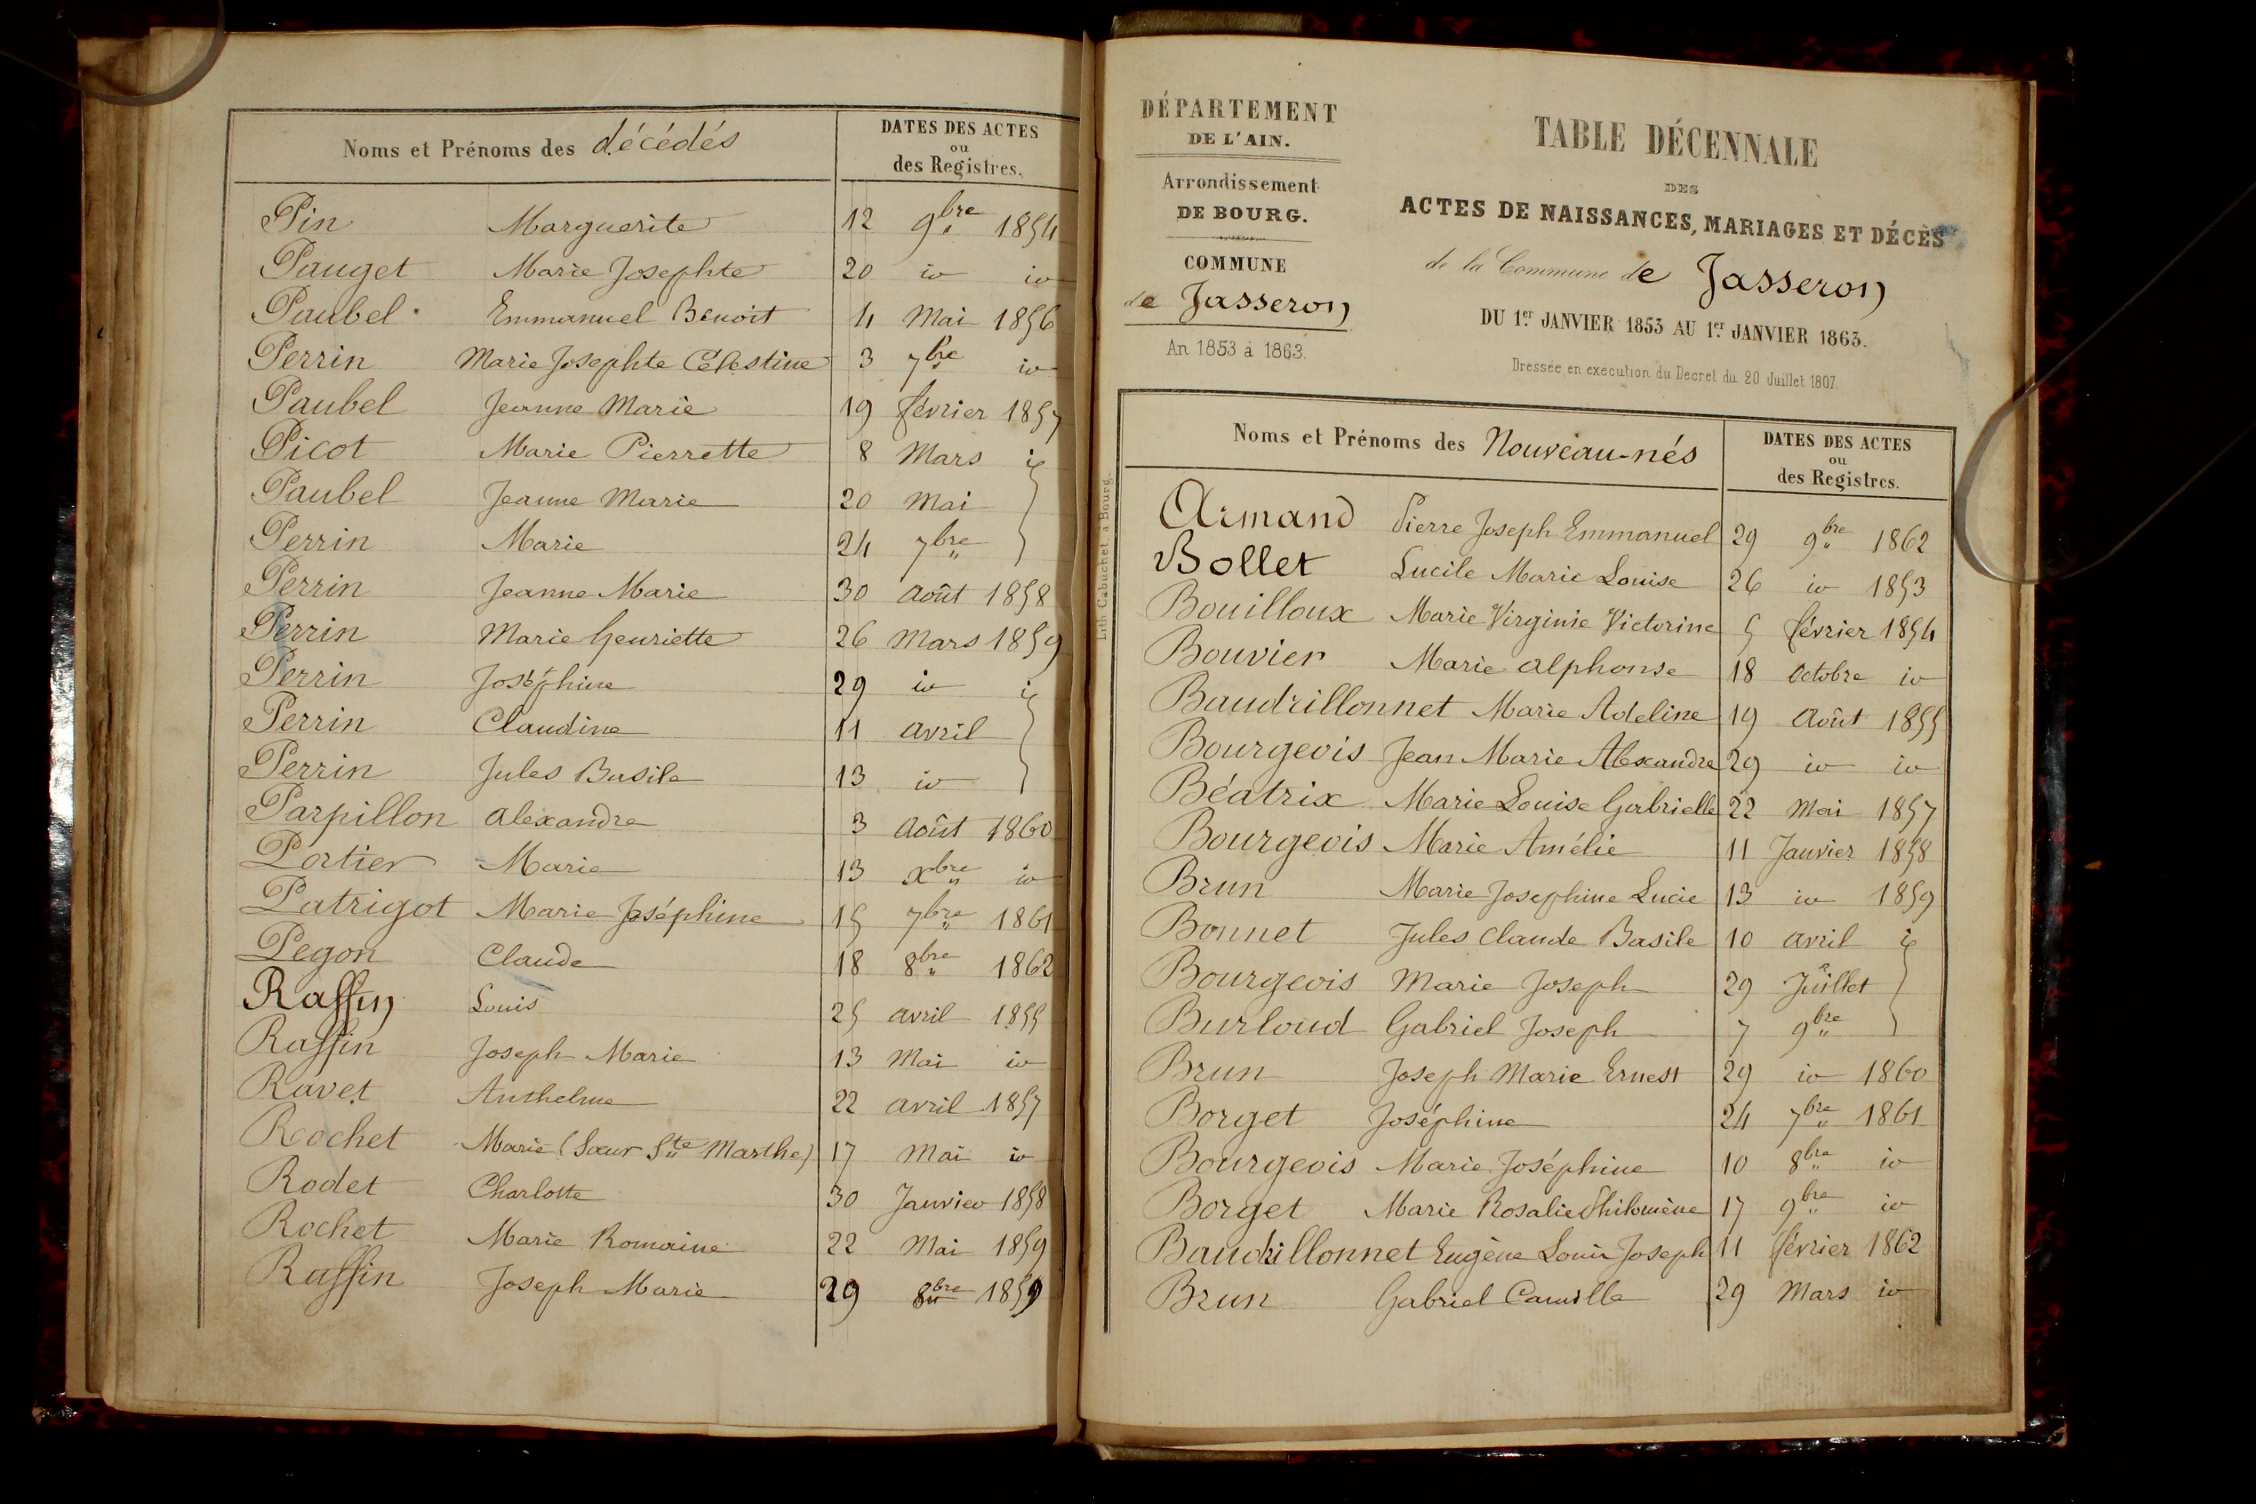 Noms et Prénoms des décédés
DATES DES ACTES
ou
des Registres.
Pin Marguerite 12 9bre 1854
Pauget Marie Josephte 20 id id
Paubel Emmanuel Benoit 4 Mai 1856
Perrin Marie Josephte Célestine 3 7bre id
Paubel Jeanne Marie 19 février 1857
Picot Marie Pierrette 8 Mars id
Paubel Jeanne Marie 20 Mai
Perrin Marie 24 7bre
Perrin Jeanne Marie 30 Août 1858
Perrin Marie Henriette 26 Mars 1859
Perrin Joséphine 29 id id
Perrin Claudine 11 avril
Perrin Jules Basile 13 id
Parpillon Alexandre 3 Août 1860
Portier Marie 13 xbre id
Patrigot Marie Joséphine 15 7bre 1861
Pegon Claude 18 8bre 1862
Raffin Louis 25 avril 1855
Raffin Joseph Marie 13 Mai id
Ravet Anthelme 22 avril 1857
Rochet Marie (Sœur Ste Marthe) 17 Mai id
Rodet Charlotte 30 Janvier 1858
Rochet Marie Romaine 22 Mai 1859
Raffin Joseph Marie 29 8bre 1859
DÉPARTEMENT
DE L'AIN.
Arrondissement
DE BOURG.
COMMUNE
de Jasseron
An 1853 à 1863.
TABLE DÉCENNALE
DES
ACTES DE NAISSANCES, MARIAGES ET DÉCÈS
de la Commune de Jasseron
DU 1er JANVIER 1853 AU 1er JANVIER 1863.
Dressée en exécution du Decret du 20 Juillet 1807.
Lith. Cabuchet, à Bourg.
Noms et Prénoms des Nouveau-nés
DATES DES ACTES
ou
des Registres.
Armand Pierre Joseph Emmanuel 29 9bre 1862
Bollet Lucile Marie Louise 26 id 1853
Bouilloux Marie Virginie Victorine 5 février 1854
Bouvier Marie Alphonse 18 Octobre id
Baudrillonnet Marie Adeline 19 Août 1855
Bourgeois Jean Marie Alexandre 29 id id
Béatrix Marie Louise Gabrielle 22 Mai 1857
Bourgeois Marie Amélie 11 Janvier 1858
Brun Marie Josephine Lucie 13 id 1859
Bonnet Jules Claude Basile 10 avril id
Bourgeois Marie Joseph 29 Juillet
Burloud Gabriel Joseph 7 9bre
Brun Joseph Marie Ernest 29 id 1860
Borget Joséphine 24 7bre 1861
Bourgeois Marie Joséphine 10 8bre id
Borget Marie Rosalie Philomène 17 9bre id
Baudrillonnet Eugène Louis Joseph 11 février 1862
Brun Gabriel Camille 29 Mars id